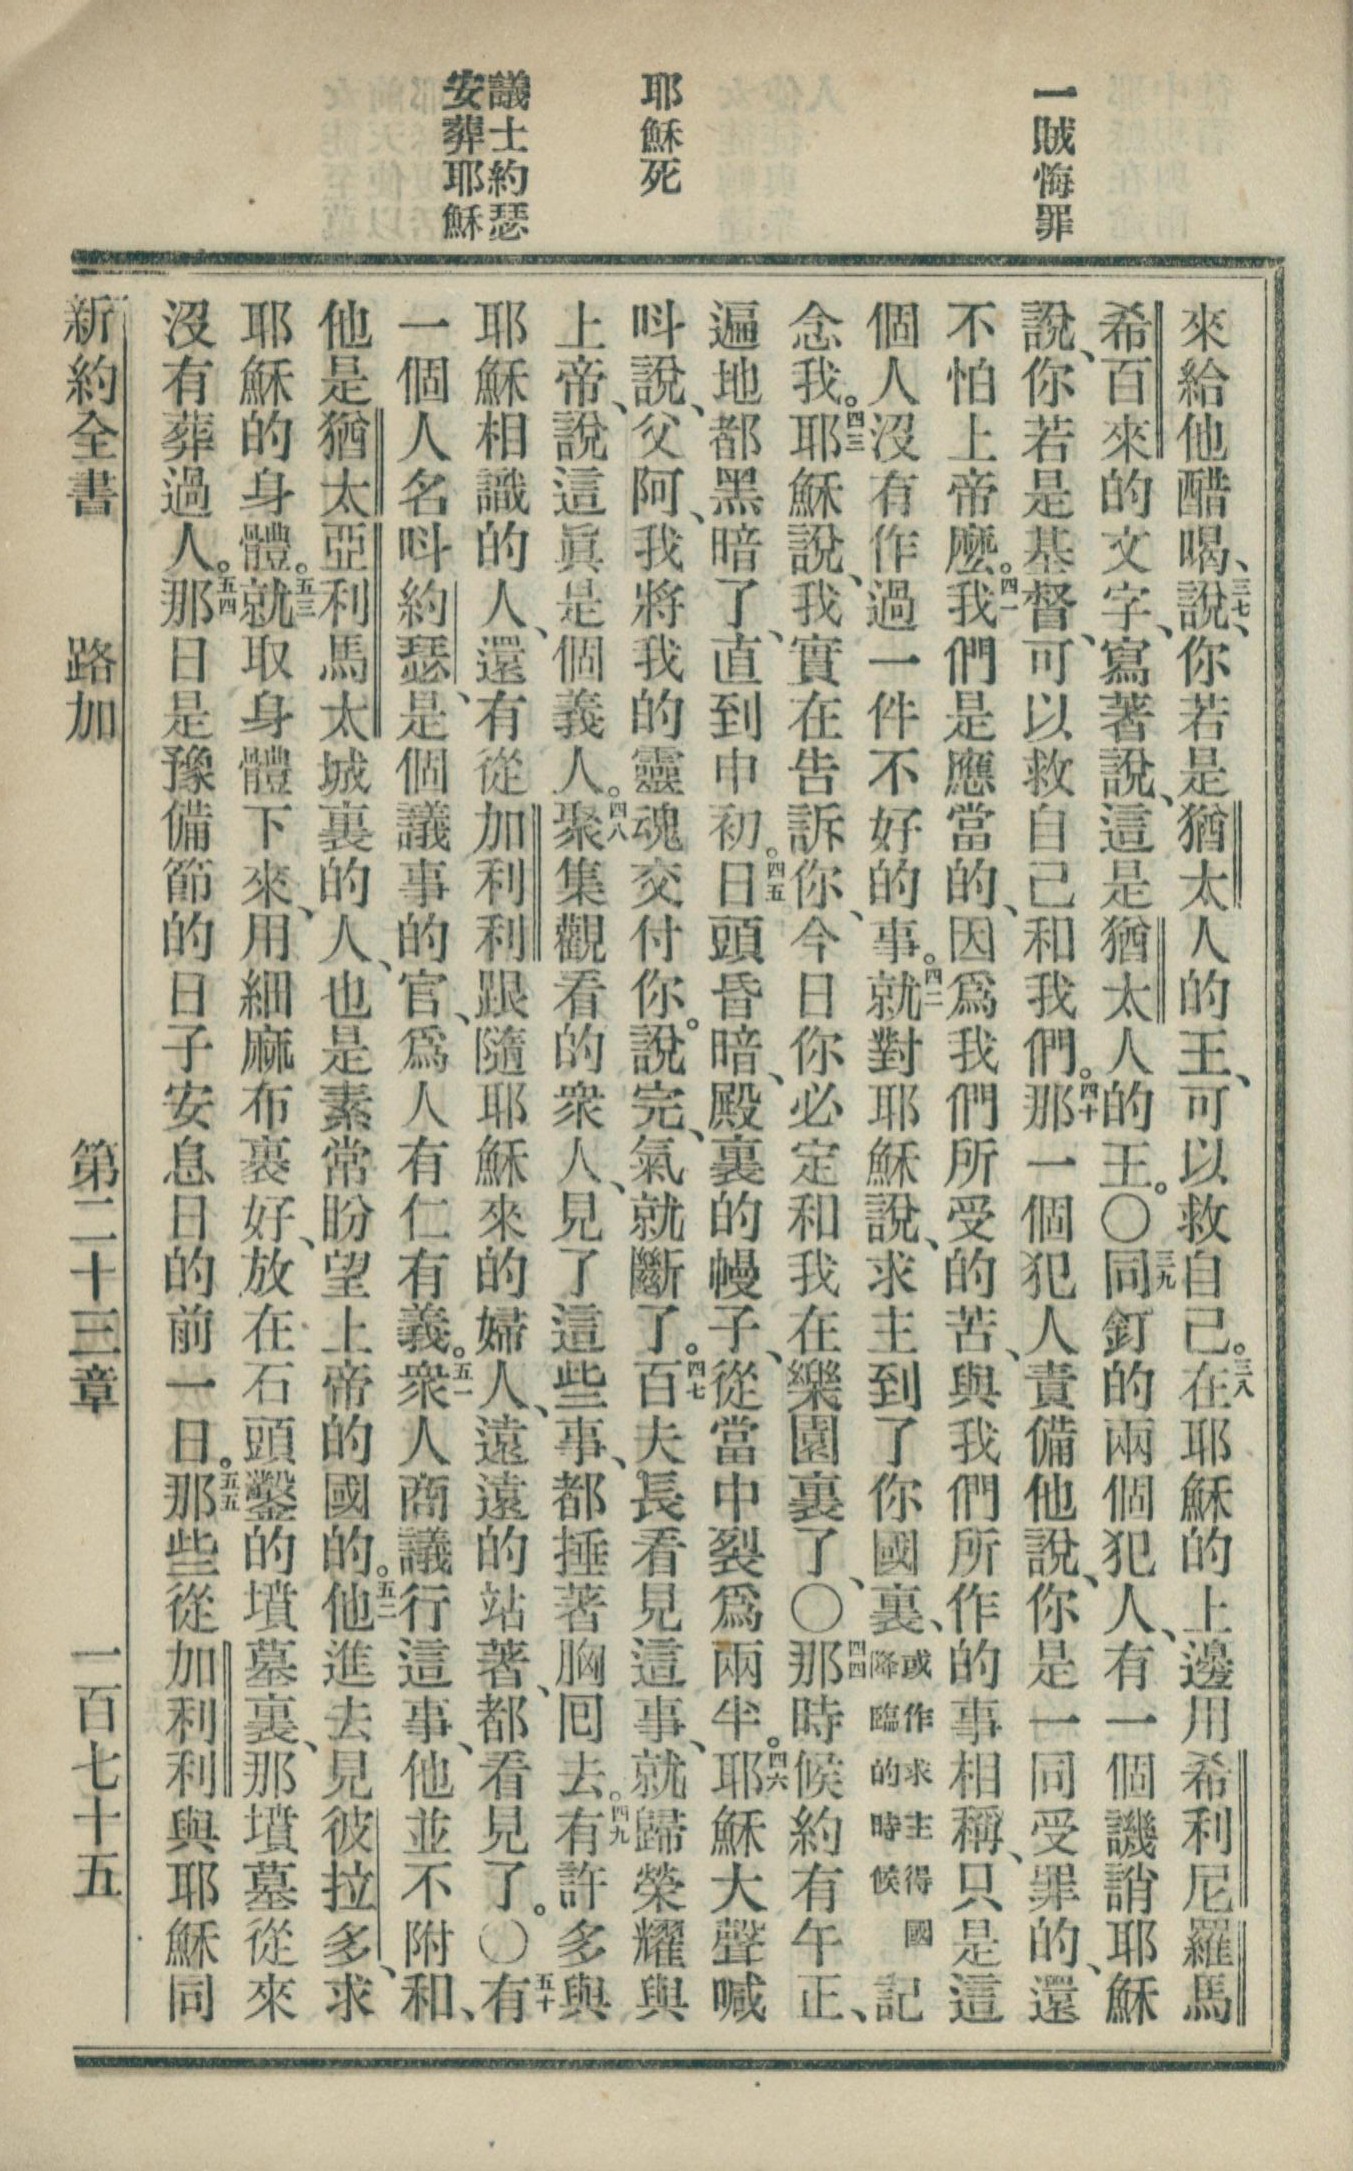 一賊悔罪
耶穌死
議士約瑟
安葬耶穌
來給他醋喝、三七說、你若是猶太人的王、可以救自己。三八在耶穌的上邊用希利尼羅馬
希百來的文字、寫著說、這是猶太人的王。〇三九同釘的兩個犯人、有一個譏誚耶穌
說、你若是基督、可以救自己和我們。四十那一個犯人責備他說、你是一同受罪的、還
不怕上帝麼。四一我們是應當的、因爲我們所受的苦、與我們所作的事相稱、只是這
個人沒有作過一件不好的事。四二就對耶穌說、求主到了你國裏、或作求主得國降臨的時候記
念我。四三耶穌說、我實在告訴你、今日你必定和我在樂園裏了、〇四四那時候約有午正、
遍地都黑暗了、直到申初。四五日頭昏暗、殿裏的幔子、從當中裂爲兩半。四六耶穌大聲喊
呌說、父阿、我將我的靈魂交付你。說完、氣就斷了。四七百夫長看見這事、就歸榮耀與
上帝、說這眞是個義人。四八聚集觀看的衆人、見了這些事、都捶著胸囘去。四九有許多與
耶穌相識的人、還有從加利利跟隨耶穌來的婦人、遠遠的站著、都看見了。〇五十有
一個人名呌約瑟、是個議事的官、爲人有仁有義。五一衆人商議行這事、他並不附和、
他是猶太亞利馬太城裏的人、也是素常盼望上帝的國的。五二他進去見彼拉多、求
耶穌的身體。五三就取身體下來、用細麻布裹好、放在石頭鑿的墳墓裏、那墳墓從來
沒有葬過人。五四那日是豫備節的日子安息日的前一日。五五那些從加利利與耶穌同
新約全書　路加　第二十三章　一百七十五